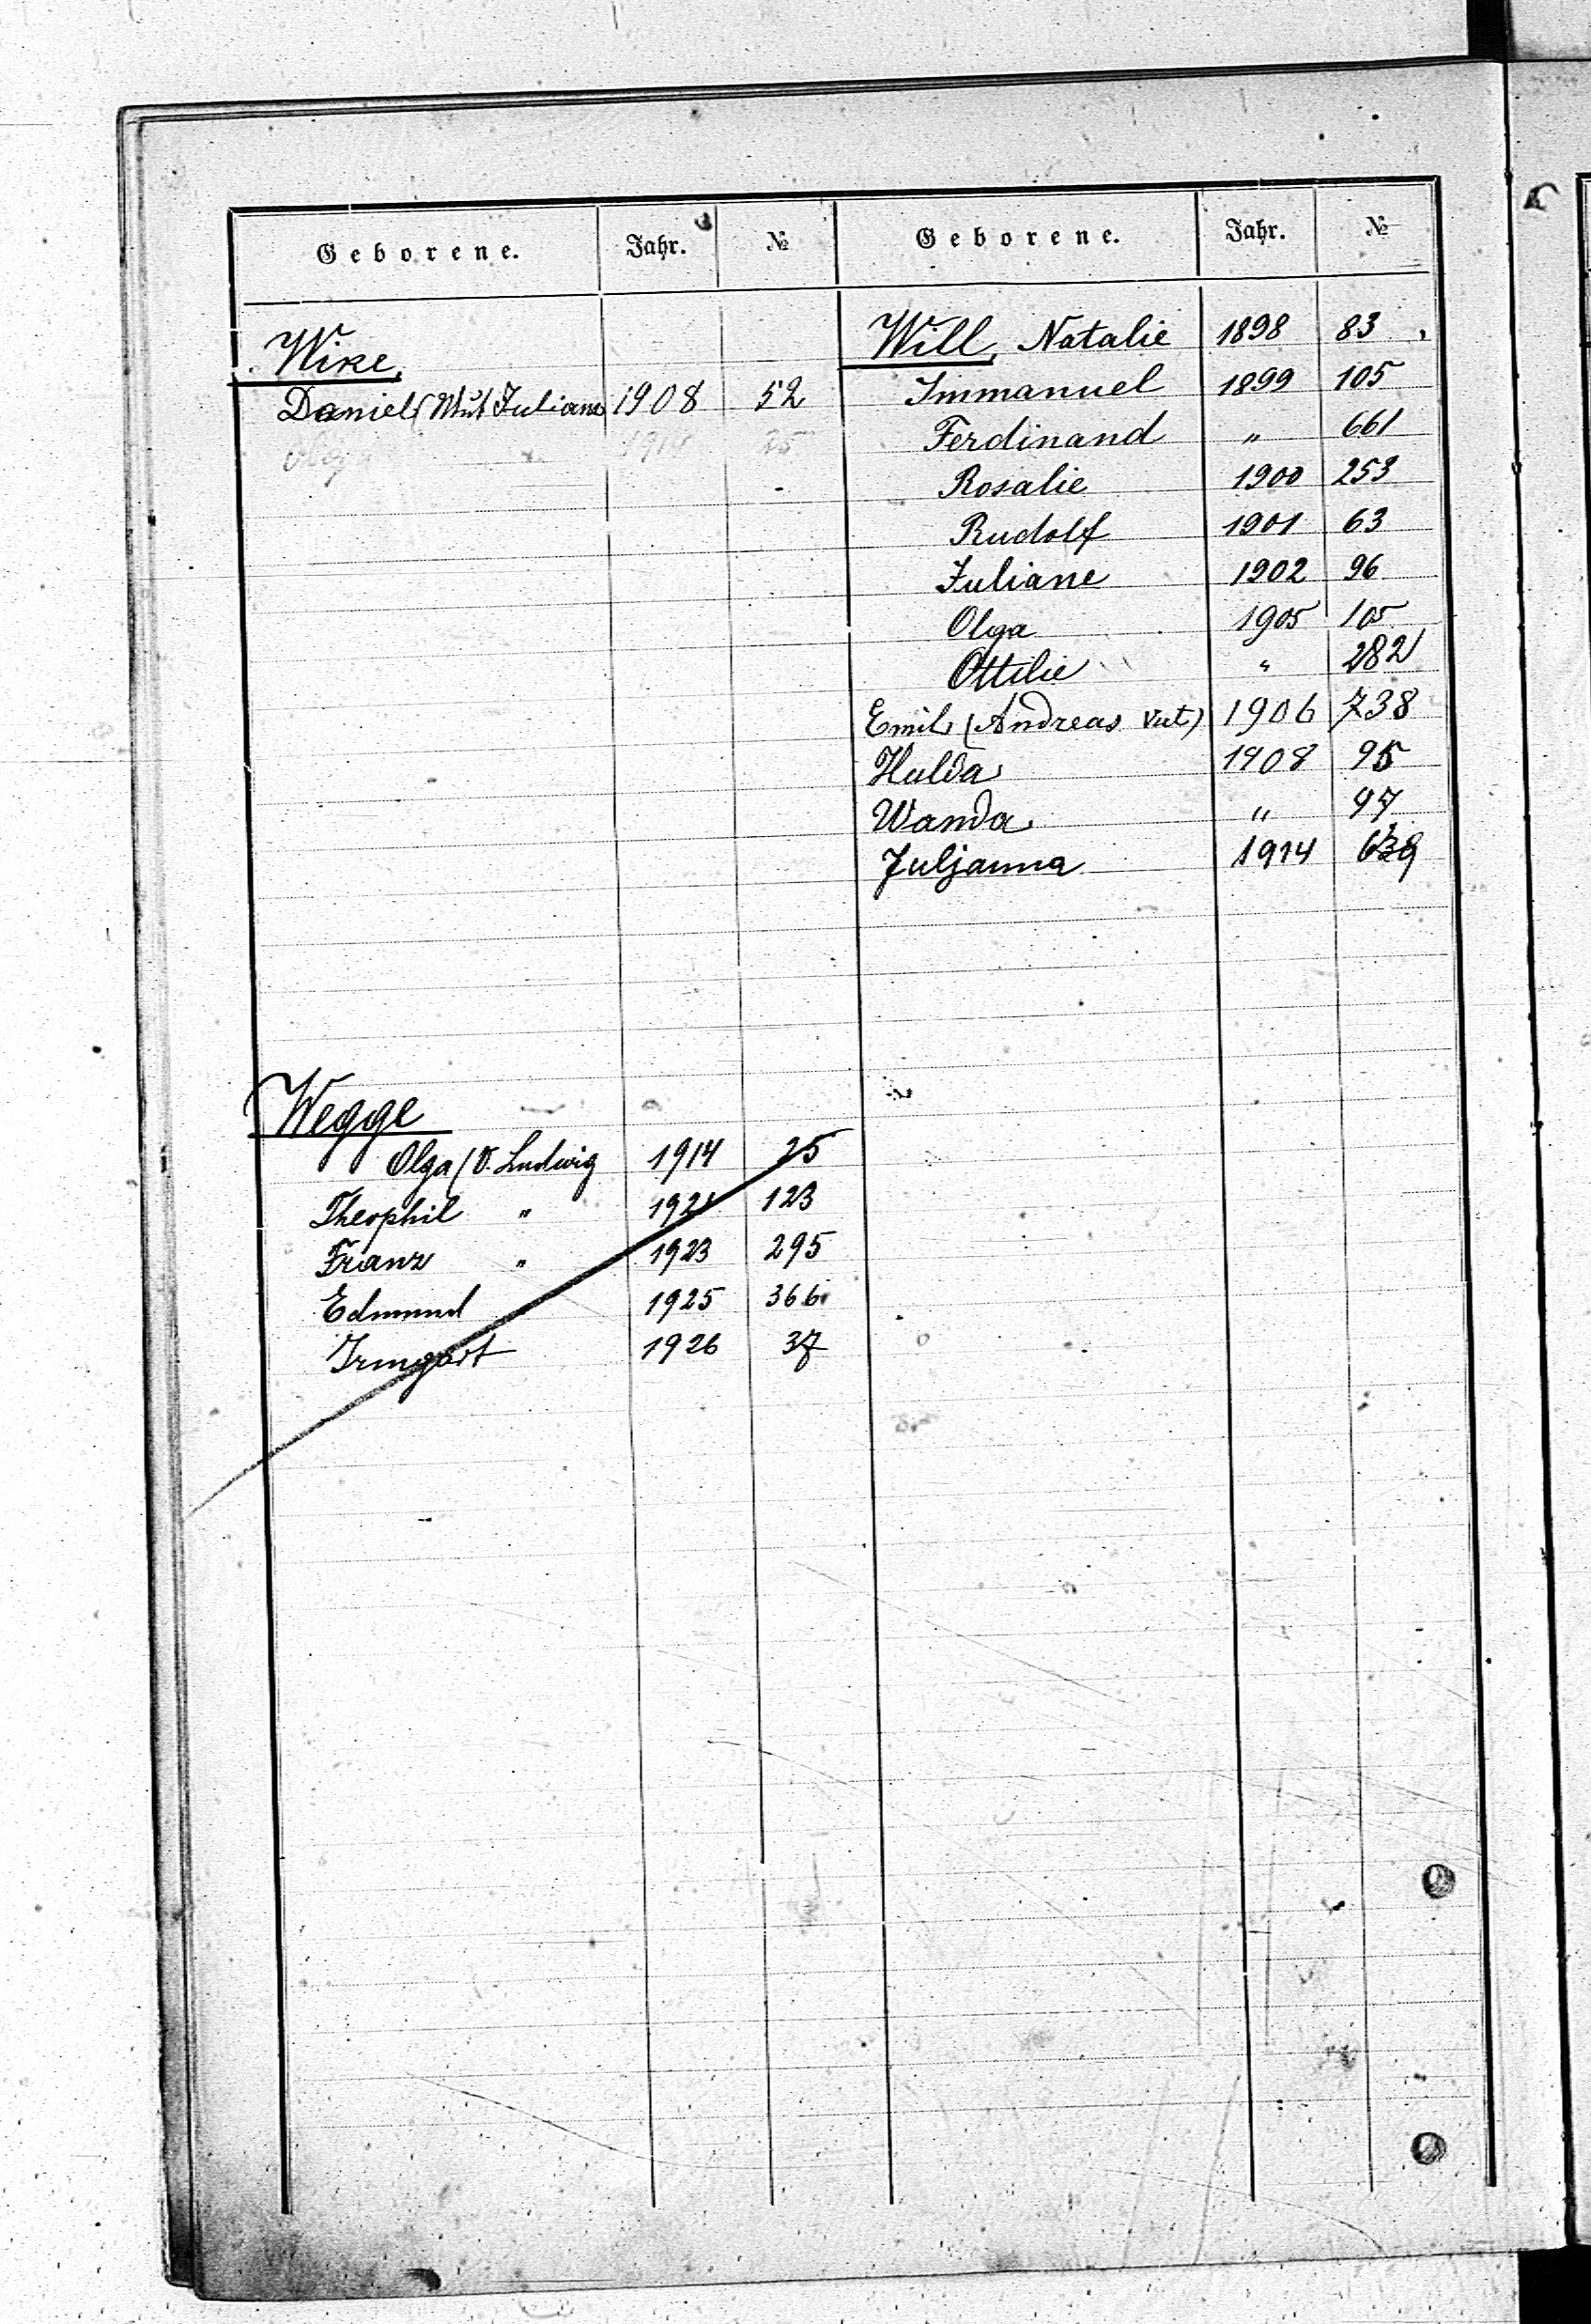 Geborene. Jahr. №
Wike,
Daniel (Mut Juliane 1908 52
Olga 1914 25
Wegge
Olga (V. Ludwig 1914 25
Theophil " 1921 123
Franz " 1923 295
Edmund 1925 366
Irmgart 1926 37
Geborene. Jahr. №
Will, Natalie 1898 83
Immanuel 1899 105
Ferdinand " 661
Rosalie 1900 253
Rudolf 1901 63
Juliane 1902 96
Olga 1905 105
Ottilie " 282
Emil (Andreas Vat) 1906 738
Hulda 1908 95
Wanda " 97
Juljanna 1914